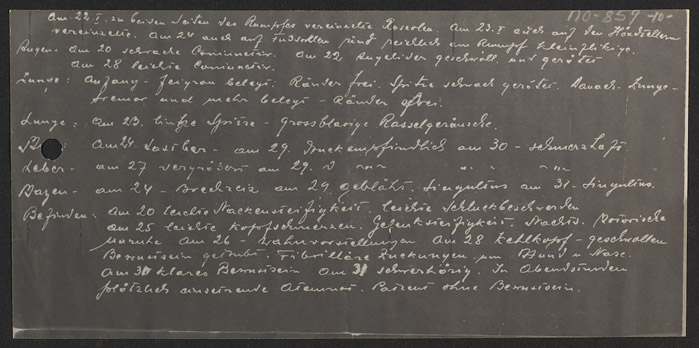 NO-859 -10-
Am 22.I. zu beiden Seiten des Rumpfes vereinzelte Roseolen. Am 23.I auch auf den Handtellern
vereinzelte. Am 24 auch auf Fußsohlen und reichlich am Rumpf kleinfleckige.
Augen: Am 20 schwache Am 22 Augenlider geschwoll. und gerötet
Am 28 leichte
Zunge: Anfang - belegt. Ränder frei. Spitze schwach gerötet. Danach - Zunge-
tremor und mehr belegt - Ränder frei.
Lunge: am 23. linke Spitze - grossblasige Rasselgeräusche.
Am 24. tastbar - am 29. Druckempfindlich am 30 - schmerzhaft.
Leber - am 27 vergrößert am 29.
Magen - am 24 - Brechreiz am 29 gebläht. Singultus am 31 - Singultus.
Befinden: Am 20 leichte Nackensteifigkeit leichte Schluckbeschwerden
am 25 leichte Kopfschmerzen. Gelenksteifigkeit. Nachts. Motorische
Unruhe Am 26 - Wahnvorstellungen Am 28 Kehlkopf - geschwollen
Bewusstsein getrübt. Fibrilläre Zuckungen um Mund u Nase.
Am 30 klares Bewusstsein Am 31 schwerhörig. In Abendstunden
plötzlich einsetzende Atemnot. Patient ohne Bewusstsein.